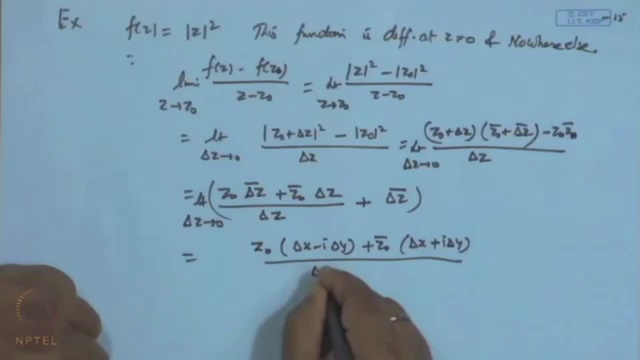 Ex f(z) = |z|² This function is diff. at z=0 & Nowhere else.
∵ lim_{z→z₀} (f(z) - f(z₀))/(z - z₀) = lt_{z→z₀} (|z|² - |z₀|²)/(z - z₀)
= lt_{Δz→0} (|z₀+Δz|² - |z₀|²)/Δz = lt_{Δz→0} ((z₀+Δz)(z̄₀+Δz̄) - z₀z̄₀)/Δz
= lt_{Δz→0} ((z₀ Δz̄ + z̄₀ Δz)/Δz + Δz̄)
= (z₀ (Δx - iΔy) + z̄₀ (Δx + iΔy))/Δ
NPTEL